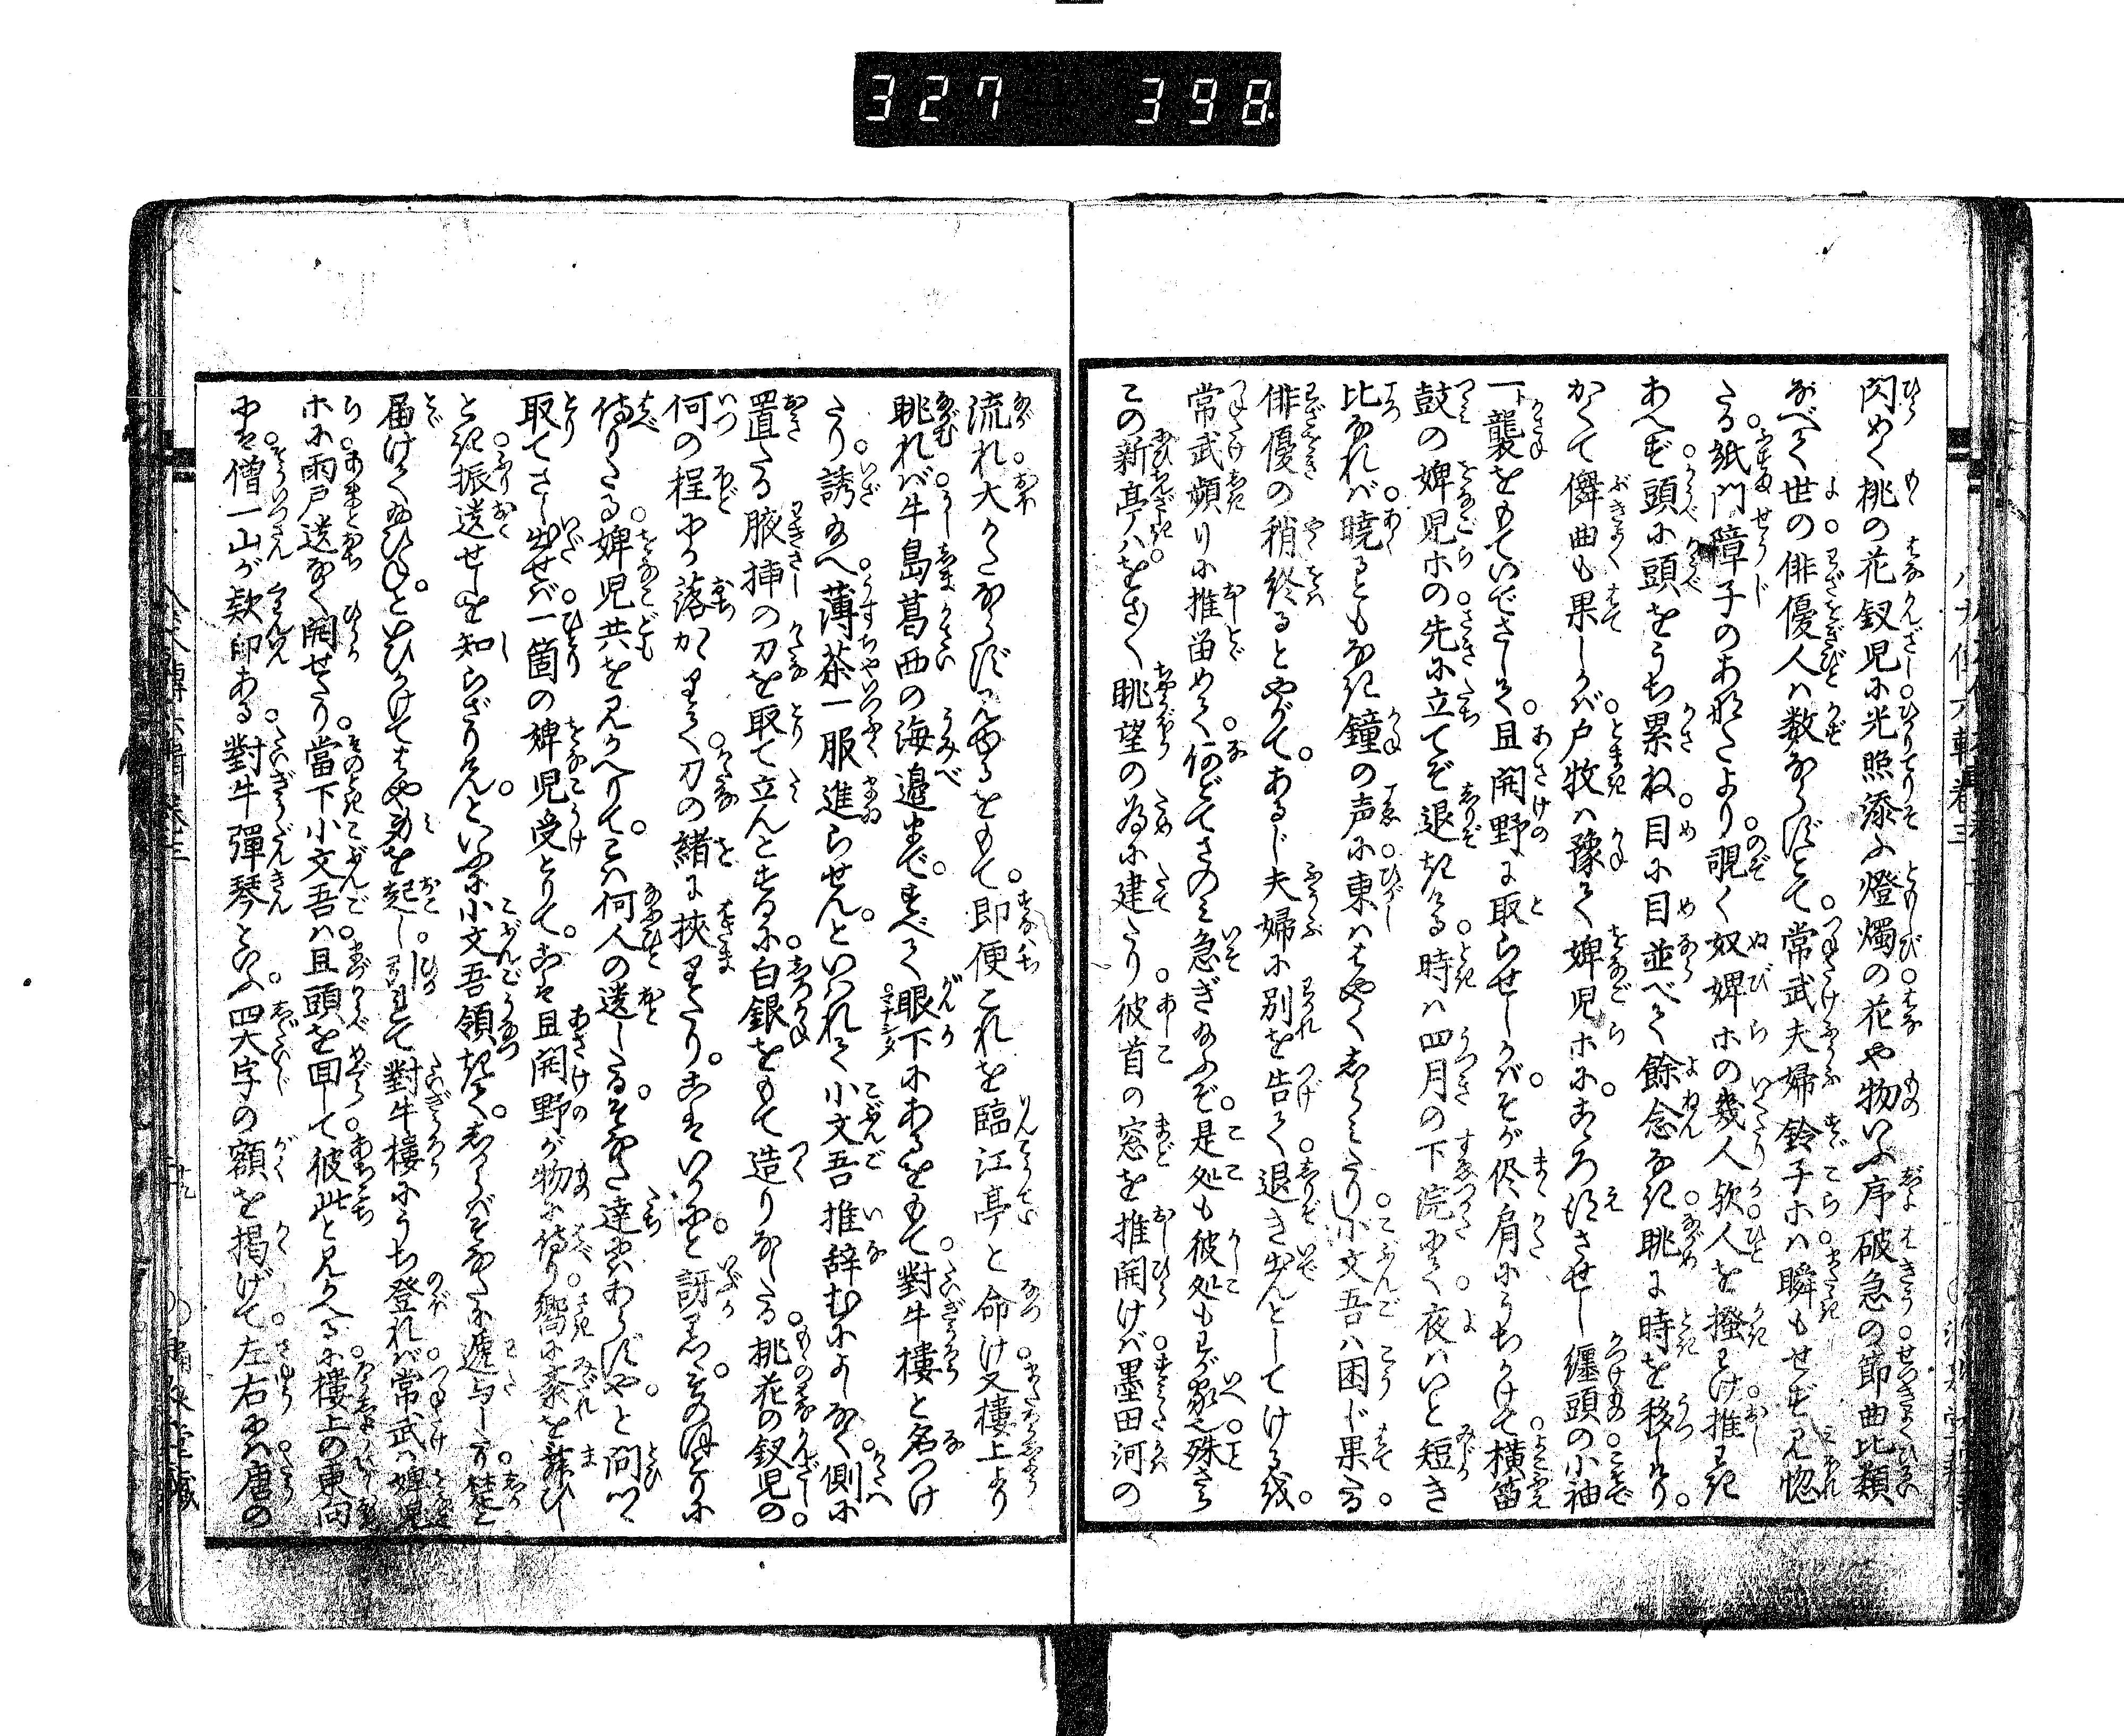 327 398
閃めく桃の花釵児に光照添ふ燈燭の花や物いふ序破急の節曲比類
なべて世の俳優人は数ならずとて常武夫婦鈴子ホは瞬もせず見惚
たる紙門障子のあなたより覗く奴婢ホの幾人歟人を掻わけ推わき
あへず頭に頭をうち累ね目に目並べて餘念なき眺に時を移しけり
かくて儛曲も果しかば戸牧は豫て婢児ホにこゝろ得させし纏頭の小袖
一襲をもていでさして且開野に取らせしかばそが侭肩にうちかけて横笛
鼓の婢児ホの先に立てぞ退きける時は四月の下浣にて夜はいと短き
比なれば暁るともなき鐘の声に東ははやくしらみたり小文吾は困じ果たる
俳優の稍終るとやがてあるじ夫婦に別を告て退き出んとしてける我
常武頻りに推留めて何どてさのみ急ぎ給ふぞ是処も彼処もわが家也殊さら
この新亭はをさ〳〵眺望の為に建たり彼首の窓を推開けば墨田河の
流れ大かたならず見ゆるをもて即便これを臨江亭と命け又樓上より
眺れば牛島葛西の海邉まですべて眼下にあるをもて對牛樓と名つけ
たり誘給へ薄茶一服進らせんといはれて小文吾推辞むによしなく側に
置たる腋挿の刀を取て立んとするに白銀をもて造りなしたる桃花の釵児の
何の程にか落かゝりて刀の緒に挟りたりこはいかにと訝りつゝそのほとりに
侍りたる婢児共を見かへりてこは何人の遺したるそなた達にはあらずやと問つゝ
取てさし出せば一箇の婢児受とりてこは且開野が物に侍り嚮に茶を薦ひし
とき振遺せしを知らざりけんといふに小文吾領きてしからばそなたに逓与しなり
届けてたびねといひかけてはや身を起しつ引れて對牛樓にうち登れば常武は婢児
ホに雨戸送なく開せたり當下小文吾は且頭を回して彼此と見かへるに樓上の東向
には僧一山が款印ある對牛彈琴といふ四大字の額を掲げて左右には唐の